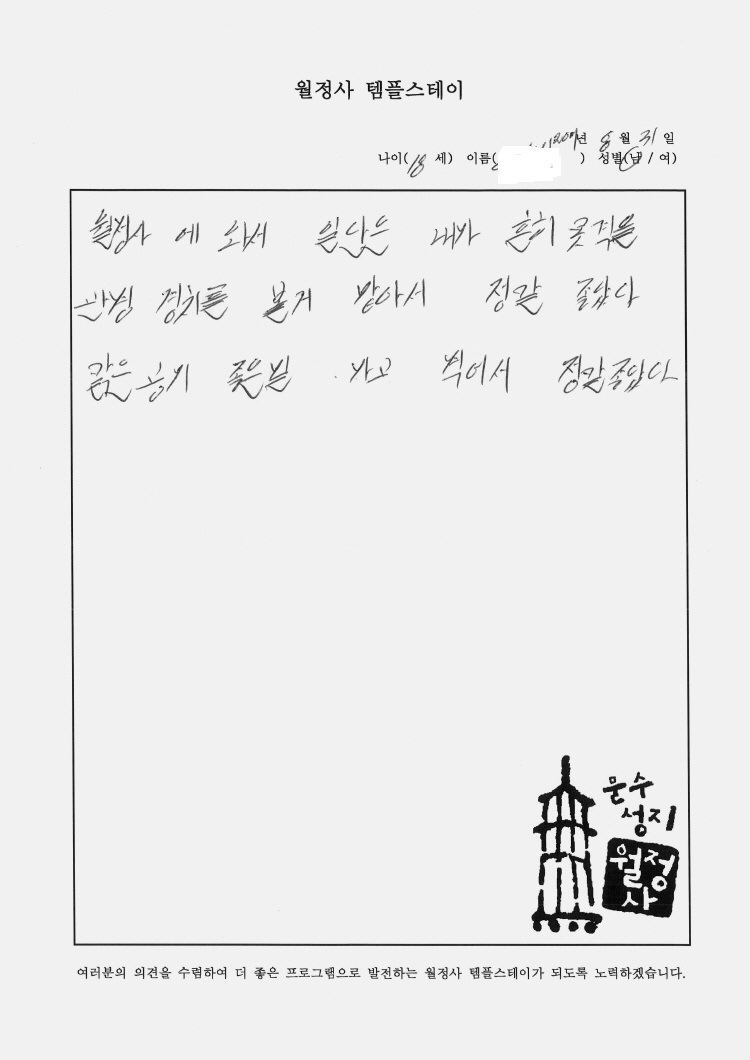 월정사 템플스테이
년 8 월 31 일
나이(18 세) 이름( ) 성별(남 / 여)
월정사 에 와서 일단은 내가 흔히 못격을
경치를 볼거 많아서 정말 좋았다
맑은공기 좋은분 보고 정말좋았다
문수
성지
월정
사
여러분의 의견을 수렴하여 더 좋은 프로그램으로 발전하는 월정사 템플스테이가 되도록 노력하겠습니다.